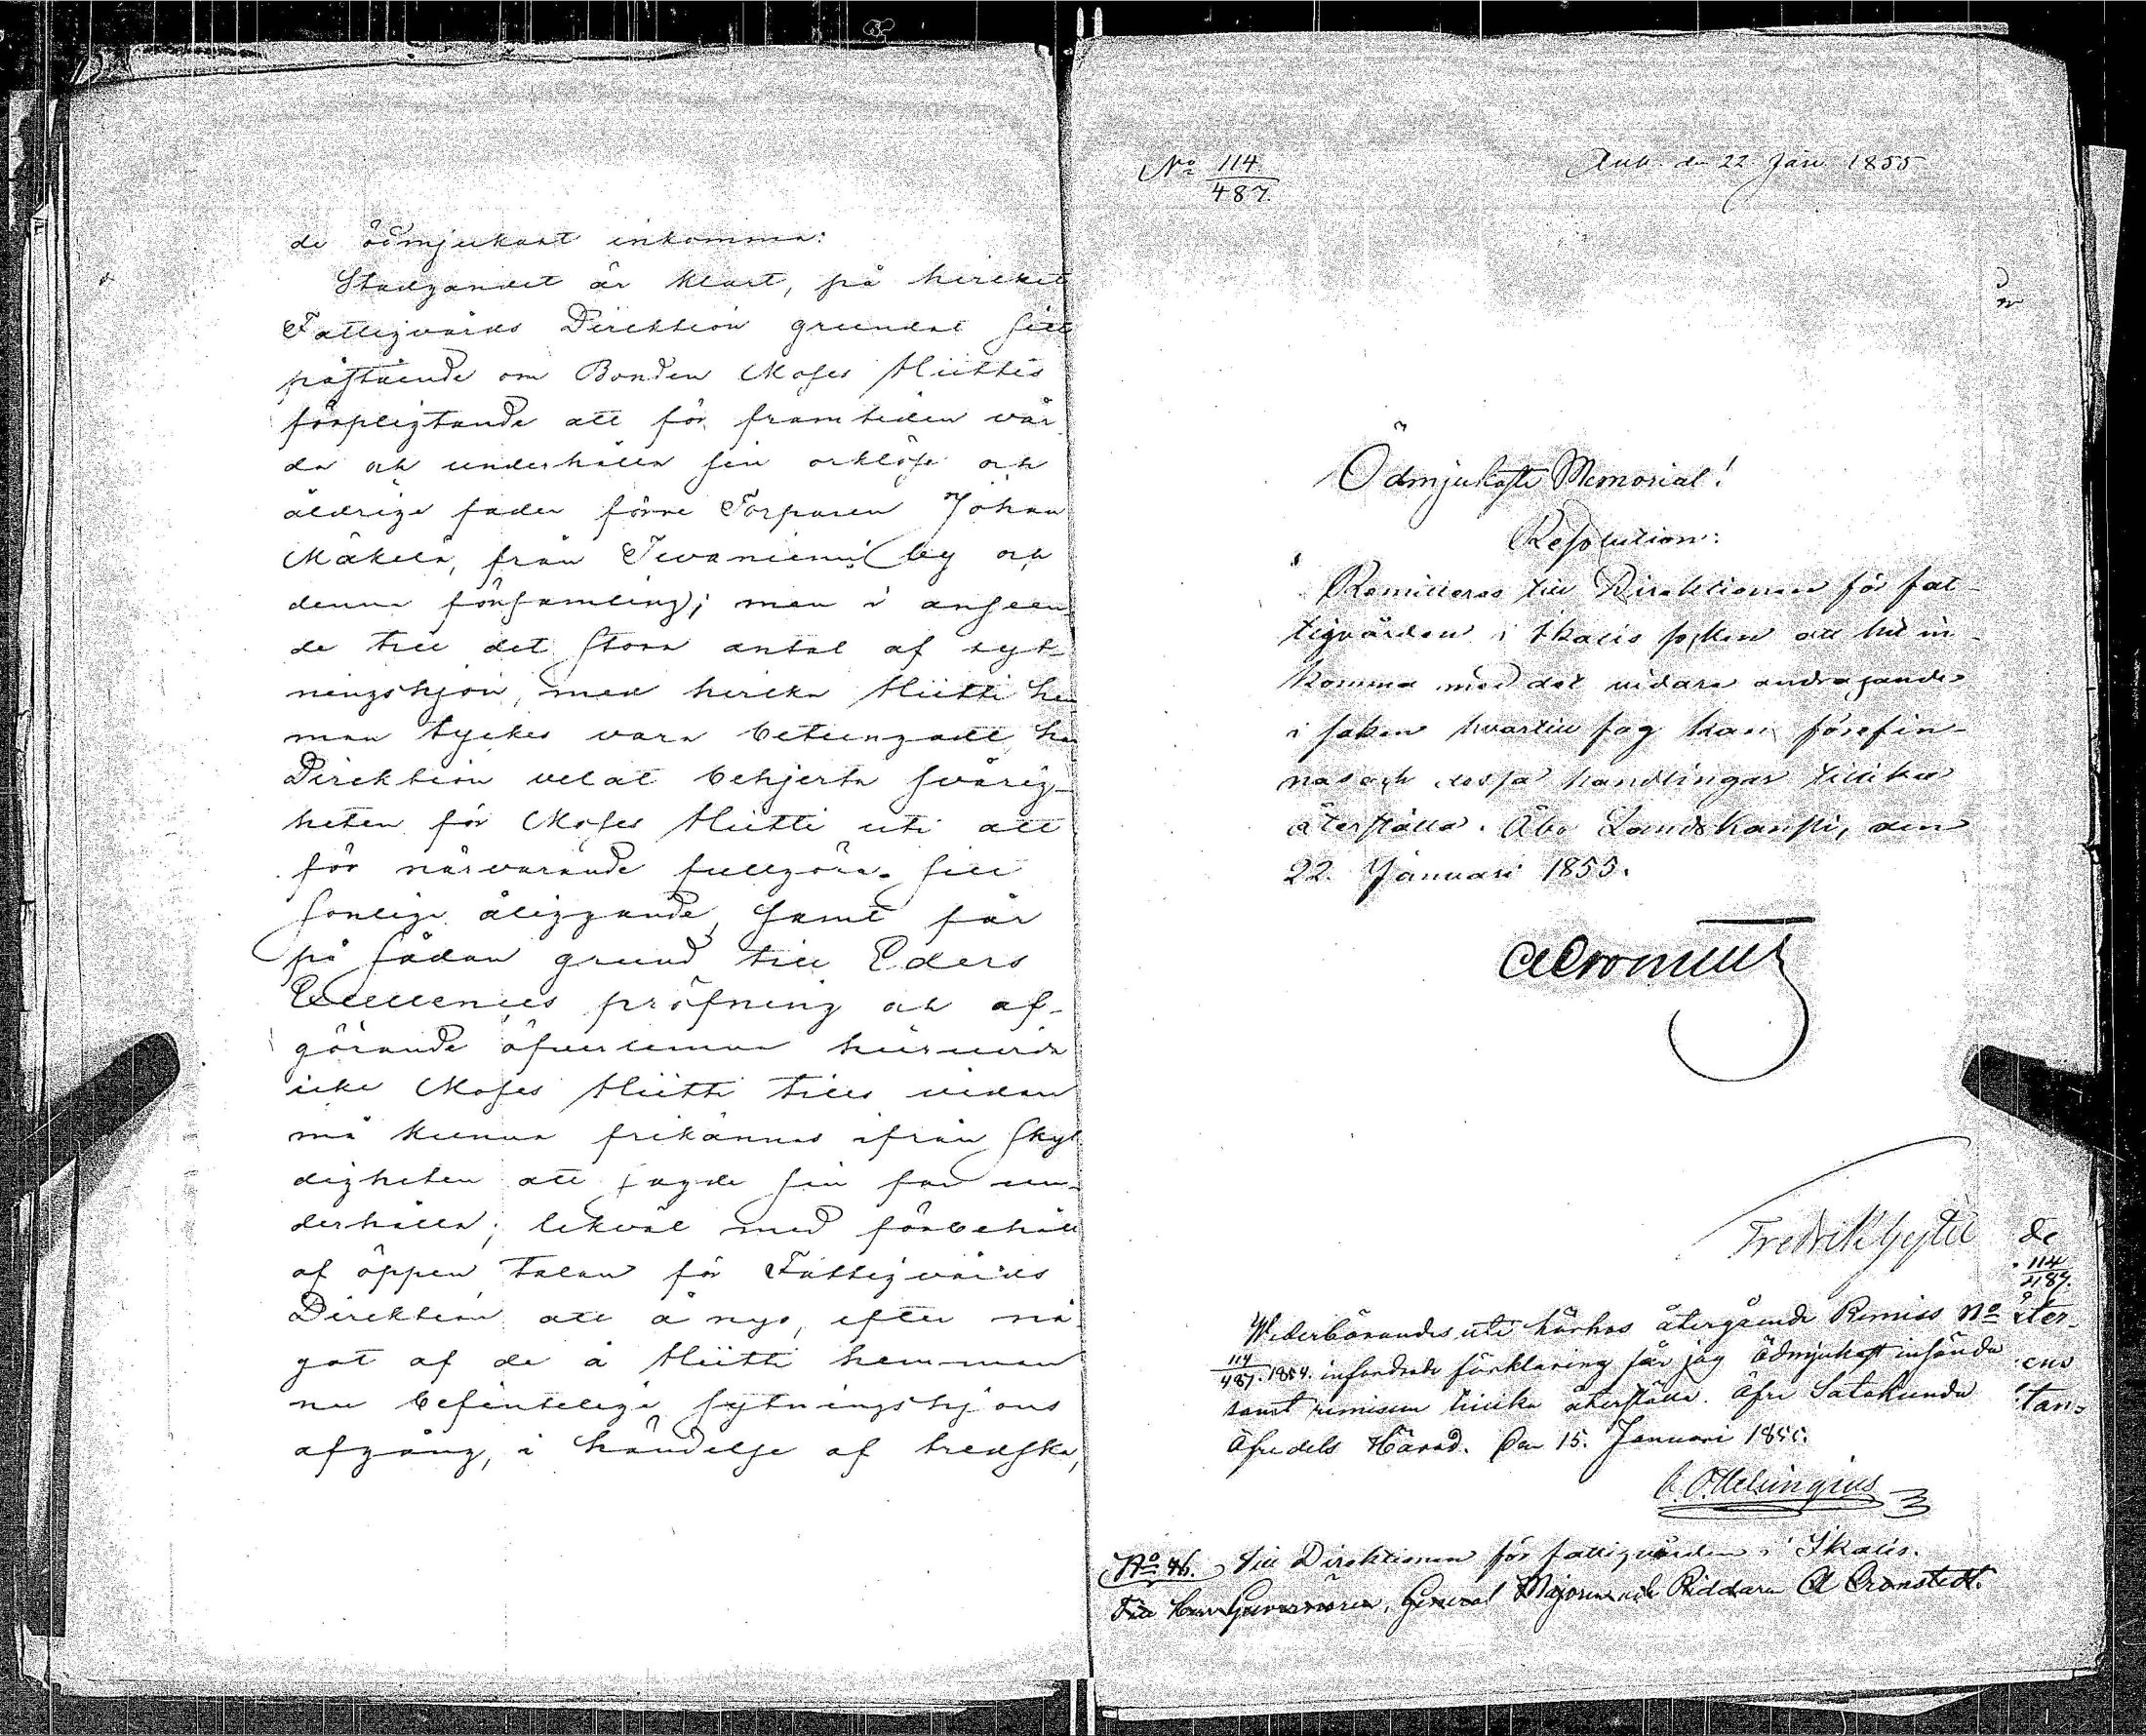 de ödmjukast inkomma:
Stadgandet är klart, på hvilket
Fattigvårds Direktion grundat sitt
påstående om Bonden Moses Miittis
förpligtande att för framtiden vår
da och underhålla sin orklöse och
åldrige fader förre Torparen Johan
Mäkelä, från Tevaniemi by och
denna församling; men i anseen
de till det stora antal af syt-
ningshjon, med hvilka Miitti he
man tyckes vara betungadt, ha
Direktion velat behjerta svårig-
heten för Moses Miitti uti att
för närvarande fullgöra sitt
sonliga åliggande, samt får
på sådan grund till Eders
Excellences pröfning och af-
görande öfverlemna huruvida
icke Moses Miitti tills vidare
må kunna frikännas ifrån skyl
digheten att sagde sin far un-
derhålla; likväl med förbehåll
af öppen talan för Fattigvårds
Direktion att å nyo, efter nå-
got af de å Miitti hemman
nu befintelige sytningshjons
afgång, i händelse af tredska,
No 114/487.
Ank. den 22 Jan 1855
Ödmjukaste Memorial!
Resolution:
Remitteras till Direktionen för fat-
tigvården i Ikalis socken att hit in-
komma med det vidare andragande
i saken hvartill fog kan förefin-
nas och dessa handlingar tillika
återställa. Åbo Landskansli, den
22. Januari 1855.
ACronstedt
Fredrik
de
114/487.
Wederbörandes uti härhos återgående Remiss No åter-
114/487. 1854. infordrade förklaring får jag Ödmjukast insända ens
samt remissen tillika återställa. Öfre Satakunda tan-
Öfredels Härad. Den 15. Januari 1855.
C. O. Helsingius
No 46. Till Direktionen för fattigvården i Ikalis.
Till Herr Guvernören, General Majoren och Riddaren A Cronstedt.